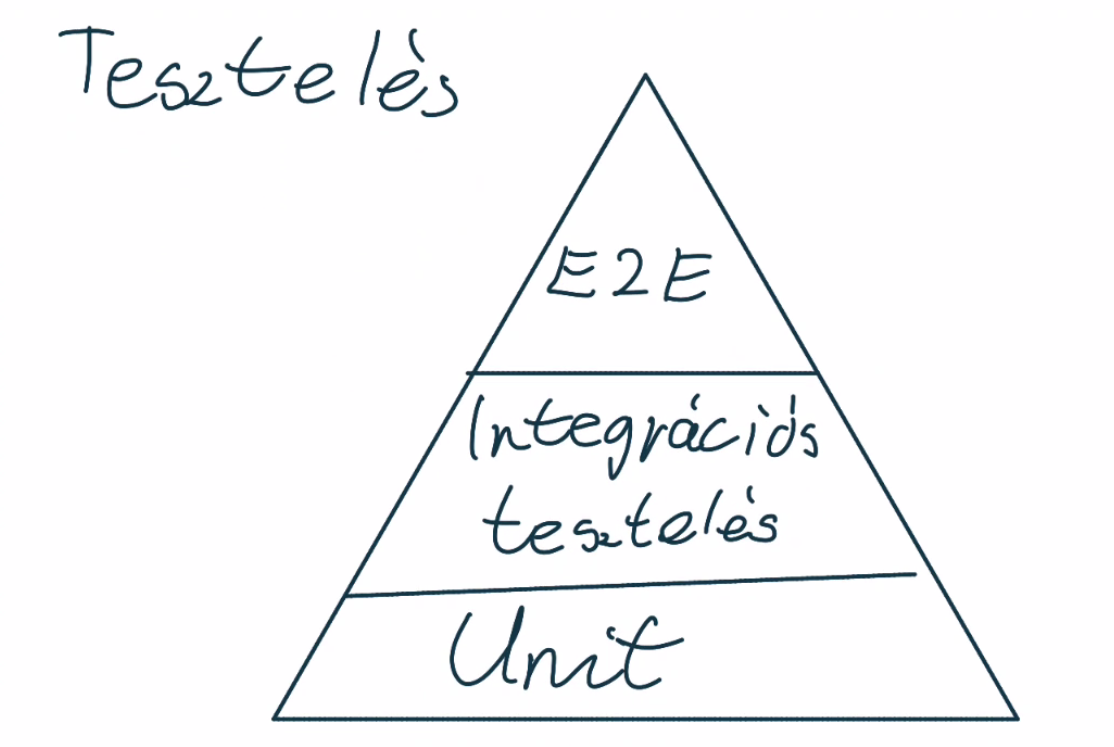 Tesztelés
E2E
Integrációs
tesztelés
Unit